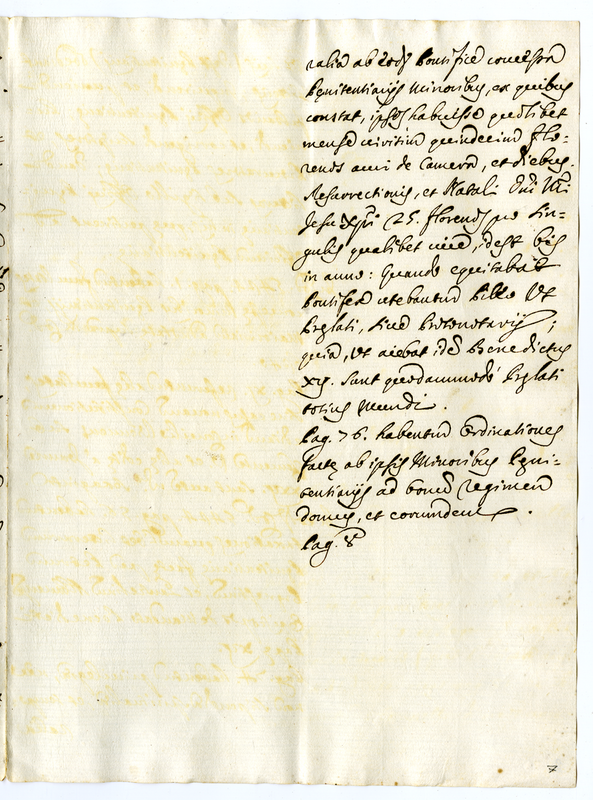 ralia ab eodẽ Pontifice concessa
Pęnitentiarijs Minoribus, ex quibus
constat, ipsos habuisse quolibet
mense viritim quindecim flo-
renos auri de Camera, et diebus
Resurrectionis, et Natali Dñi Nri
Jesu Xpi 25. florenos pro sin-
gulis qualibet vice, idest bis
in anno: Quando equitabat
Pontifex utebantur Pilleo Vt
Pręlati, siue Protonotarij;
quia, Vt aiebat idẽ Benedictus
XII. sunt quodammodò Pręlati
totius Mundi.
Pag. 76. habentur Ordinationes
factę ab ipsis Minoribus Pęni-
tentiarijs ad bonum regimen
domus, et eorumdem.
Pag. 8
7